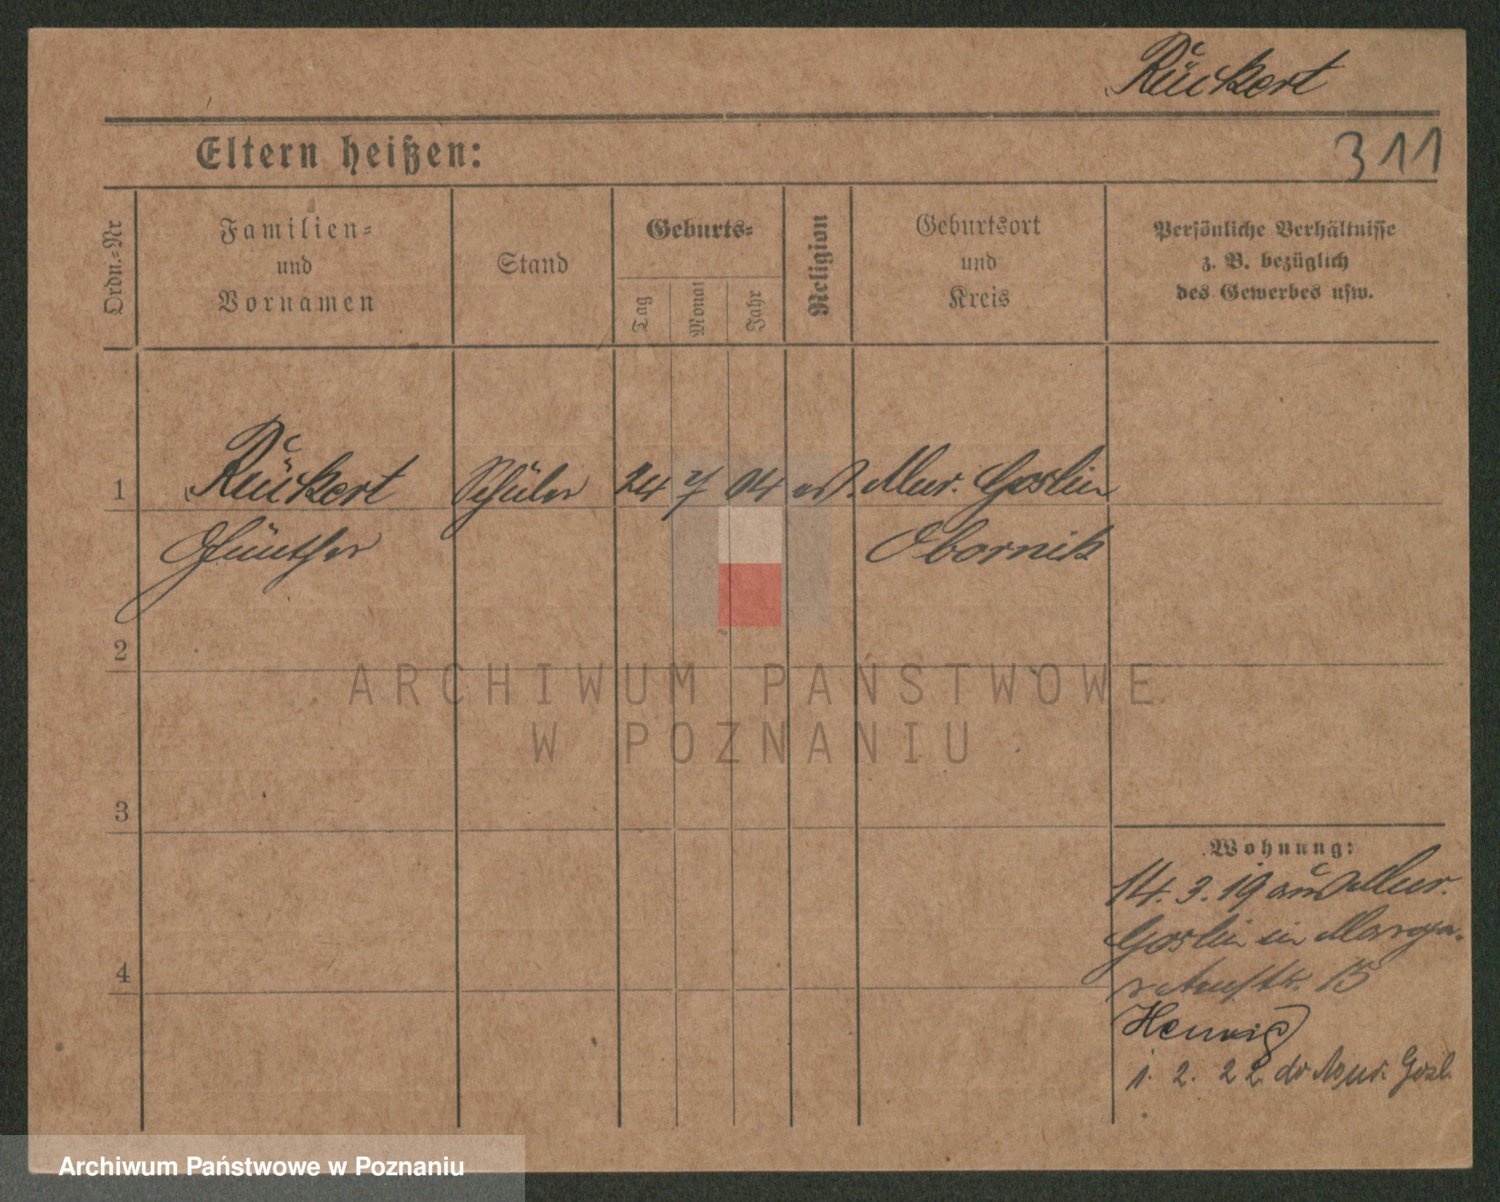 Rückert
Eltern heißen:
311
Ordn.-Nr
Familien-
und
Vornamen
Stand
Geburts-
Tag
Monat
Jahr
Religion
Geburtsort
und
Kreis
Persönliche Verhältnisse
z. B. bezüglich
des Gewerbes usw.
1 Rückert Schüler 24 7 04 ev. Mur. Goslin
Günther Obornik
2
3
4
Wohnung:
14. 3. 19 aus Mur.
Goslin in Marga-
15
1. 2. 22 do Mur. Gosl.
ARCHIWUM PAŃSTWOWE
W POZNANIU
Archiwum Państwowe w Poznaniu